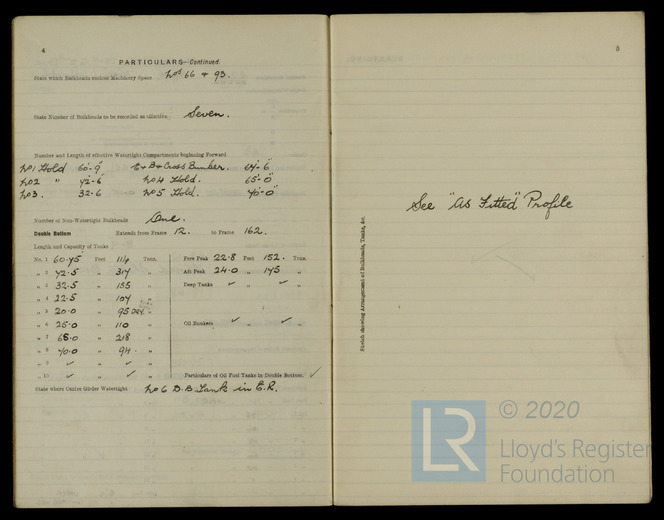 4
PARTICULARS—Continued.
State which Bulkheads enclose Machinery Space Nos 66 & 93.
State Number of Bulkheads to be recorded as effective Seven.
Number and Length of effective Watertight Compartments beginning Forward
No1 Hold 60'-9" E & B & Cross Bunker. 64'-6"
No2 " 42'-6 No4 Hold. 65'-0"
No3. 32'-6 No5 Hold. 40'-0"
Number of Non-Watertight Bulkheads One.
Double Bottom Extends from Frame 12. to Frame 162.
Length and Capacity of Tanks
No. 1 60.75 Feet 114 Tons. Fore Peak 22.8 Feet 152. Tons.
" 2 42.5 " 317 " Aft Peak 24.0 " 145 "
" 3 32.5 " 155 " Deep Tanks ✓ " ✓ "
" 4 22.5 " 107 "
" 5 20.0 " 95 DRY. "
" 6 25.0 " 110 " Oil Bunkers ✓ " ✓ "
" 7 65.0 " 218 "
" 8 40.0 " 94. "
" 9 ✓ " ✓ "
" 10 ✓ " ✓ " Particulars of Oil Fuel Tanks in Double Bottom. ✓
State where Centre Girder Watertight No 6 D.B. Tank in E.R.
5
Sketch showing Arrangement of Bulkheads, Tanks, &c.
See "As Fitted" Profile
LR
© 2020
Lloyd's Register
Foundation